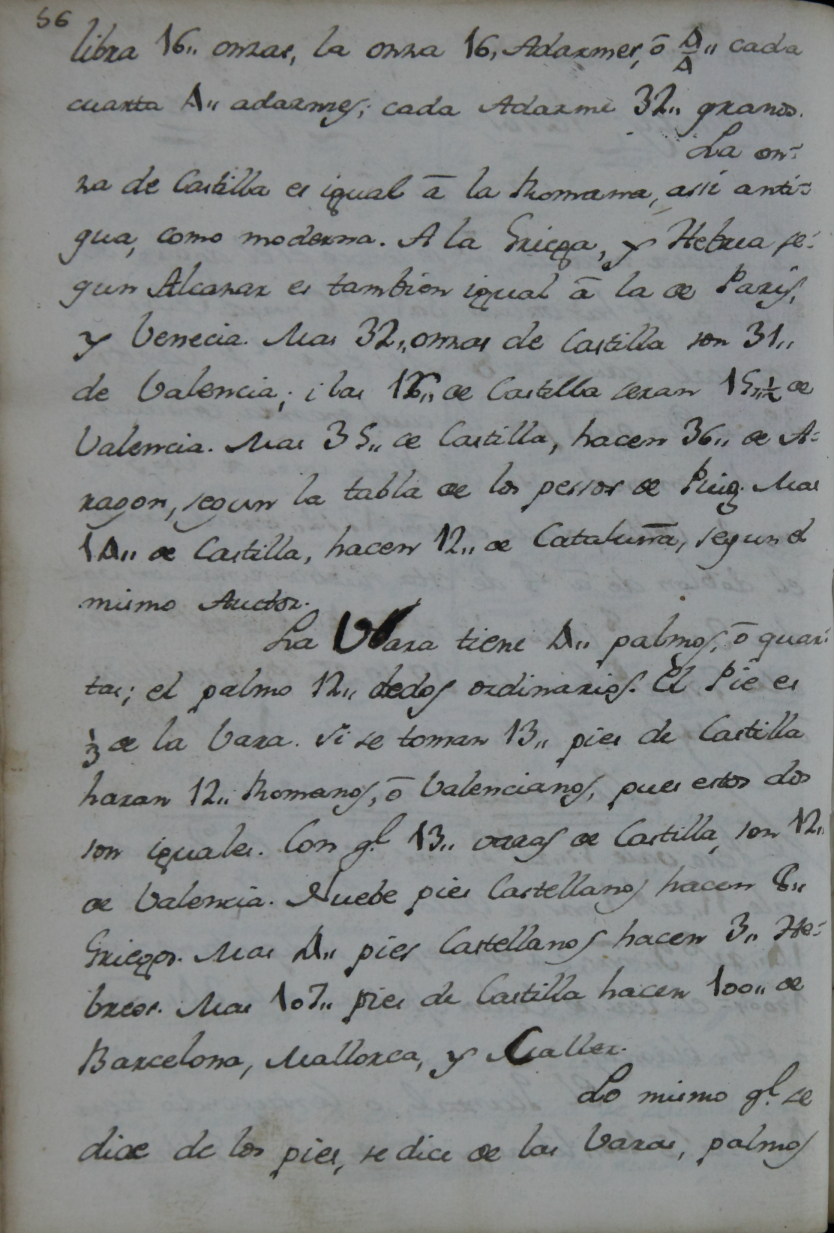 56
libra 16,, onzas, la onza 16, Adarmes, ō 4/4,, cada
cuarta 4,, adarmes; cada Adarme 32,, granos.
La on-
za de Castilla es igual ā la Romana, assi anti-
gua, como moderna. A la Griega, y Hebrea se-
gun Alcazar es tambien igual ā la de Paris,
y Venecia. Mas 32,, onzas de Castilla son 31,,
de Valencia; i las 16,, de Castilla seran 15,, ½ de
Valencia. Mas 35,, de Castilla, hacen 36,, de A-
ragon, segun la tabla de los pessos de Puig. Mas
14,, de Castilla, hacen 12,, de Cataluña, segun el
mismo Auctor.
La Vara tiene 4,, palmos, ō quar-
tas; el palmo 12,, dedos ordinarios. El Pie es
⅓ de la Vara. Si se toman 13,, pies de Castilla
haran 12,, Romanos, ō Valencianos, pues estos dos
son iguales. Con ql 13,, varas de Castilla, son 12,,
de Valencia. Nuebe pies Castellanos hacen 8,,
Griegos. Mas 4,, pies Castellanos hacen 3,, He-
breos. Mas 107,, pies de Castilla hacen 100,, de
Barcelona, Mallorca, y Caller.
Lo mismo ql se
dice de los pies, se dice de las Varas, palmos